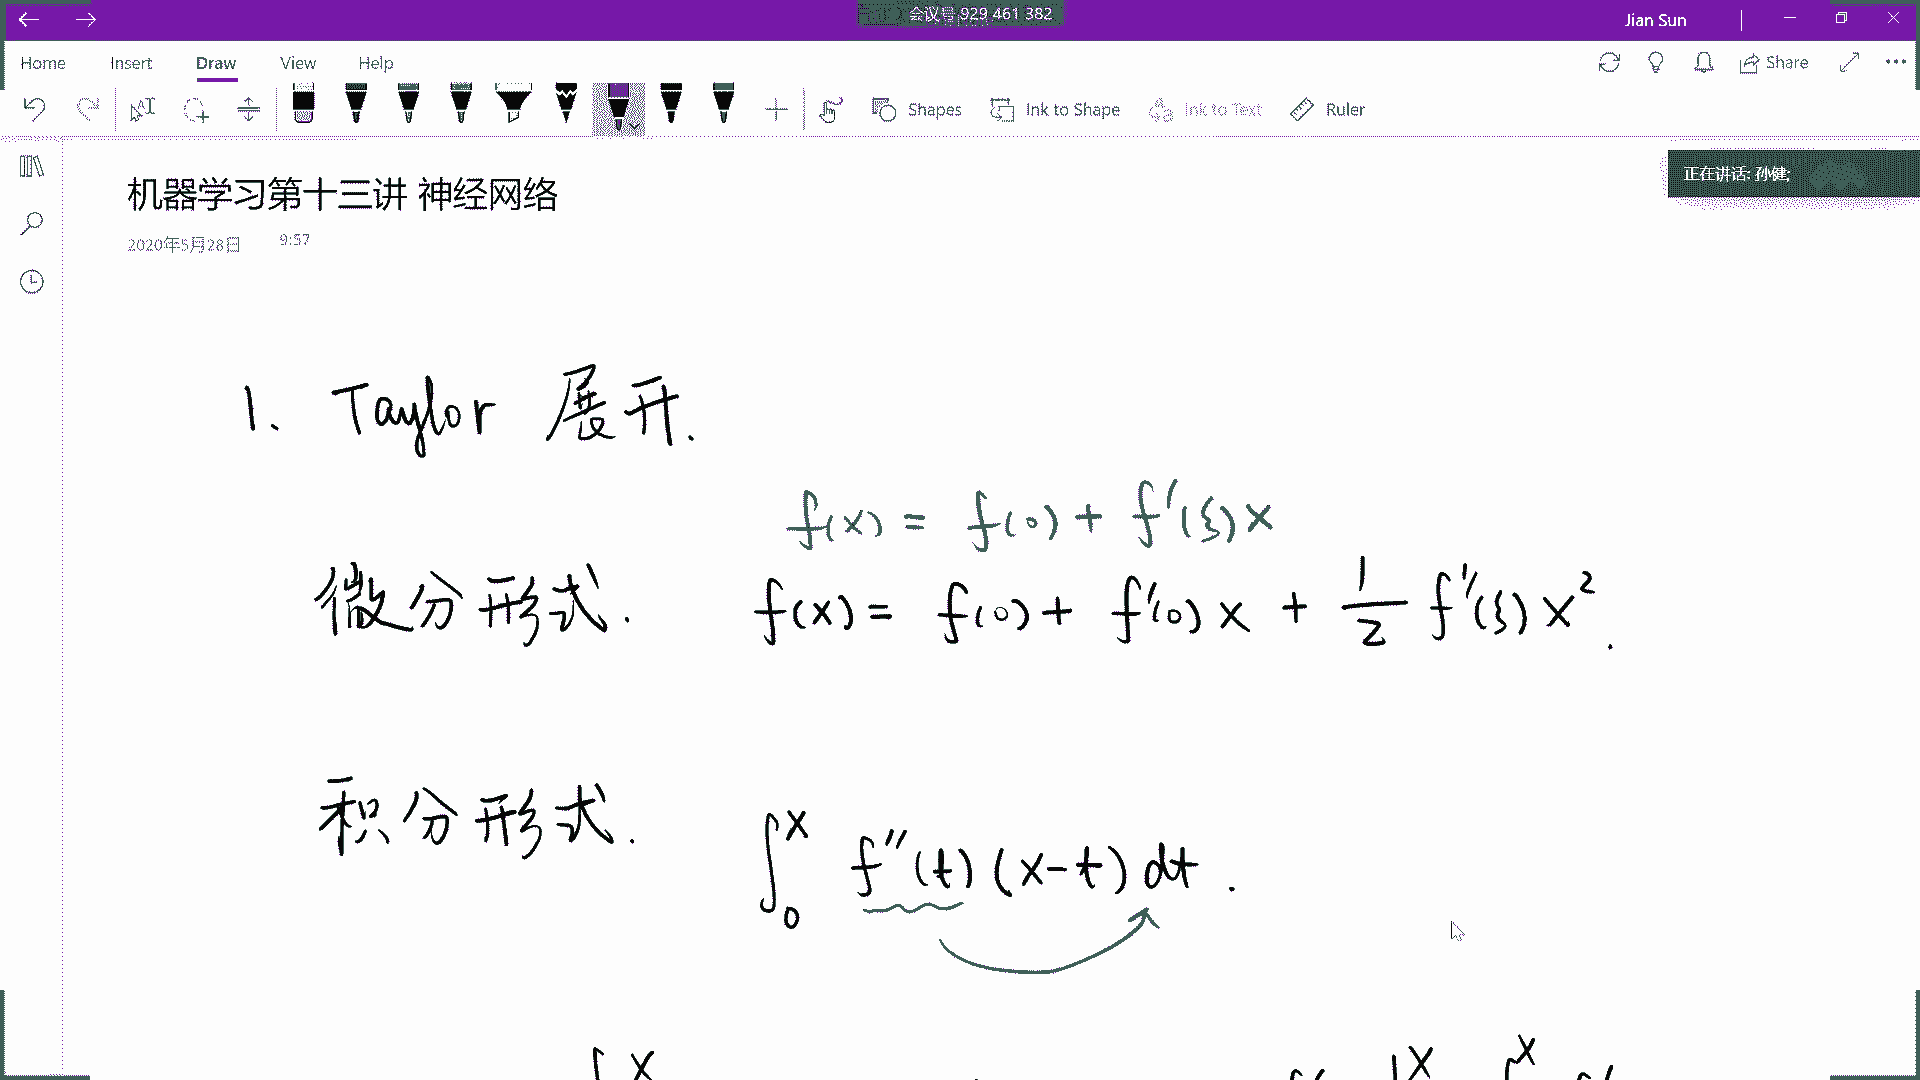 会议号 929 461 382
Jian Sun
Home Insert Draw View Help
Share
Shapes Ink to Shape Ink to Text Ruler
正在讲话: 孙健;
机器学习第十三讲 神经网络
2020年5月28日 9:57
1. Taylor 展开.
f(x) = f(0) + f'(ξ)x
微分形式. f(x) = f(0) + f'(0)x + 1/2 f''(ξ)x².
积分形式. ∫₀ˣ f''(t)(x-t)dt.